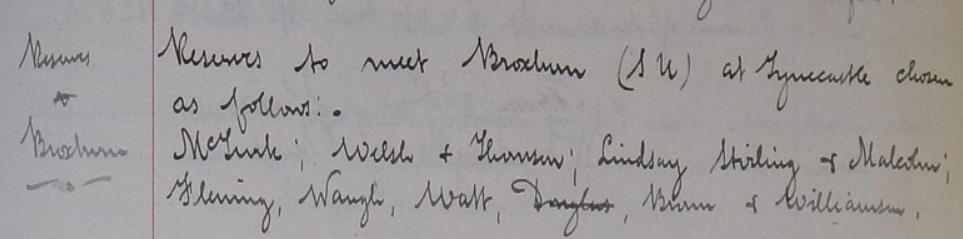 Reserves
v
Broxburn
Reserves to meet Broxburn (S U) at Tynecastle chosen
as follows:.
McGurk; Welsh & Thomson; Lindsay Stirling & Malcolm;
Fleming, Waugh, Watt, Douglas, Birrell & Williamson.